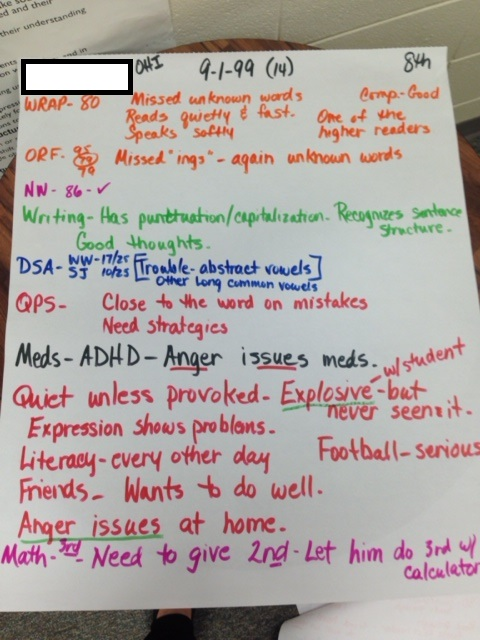 nd their
their understanding
OHI 9-1-99 (14) 8th
WRAP- 80 Missed unknown words Comp.-Good
Reads quietly & fast. One of the
Speaks softly higher readers
ORF- 95
79
99 Missed "ings" - again unknown words
NW- 86- ✓
Writing- Has punctuation/capitalization. Recognizes sentence
structure.
Good thoughts.
DSA- WW-17/25 [Trouble- abstract vowels]
SJ 10/25 Other Long common vowels
QPS- Close to the word on mistakes
Need strategies
Meds- ADHD- Anger issues meds.
w/student
Quiet unless provoked- Explosive-but
never seen it.
Expression shows problems.
Literacy-every other day Football-serious
Friends- Wants to do well.
Anger issues at home.
Math-3rd- Need to give 2nd- Let him do 3rd w/
calculator